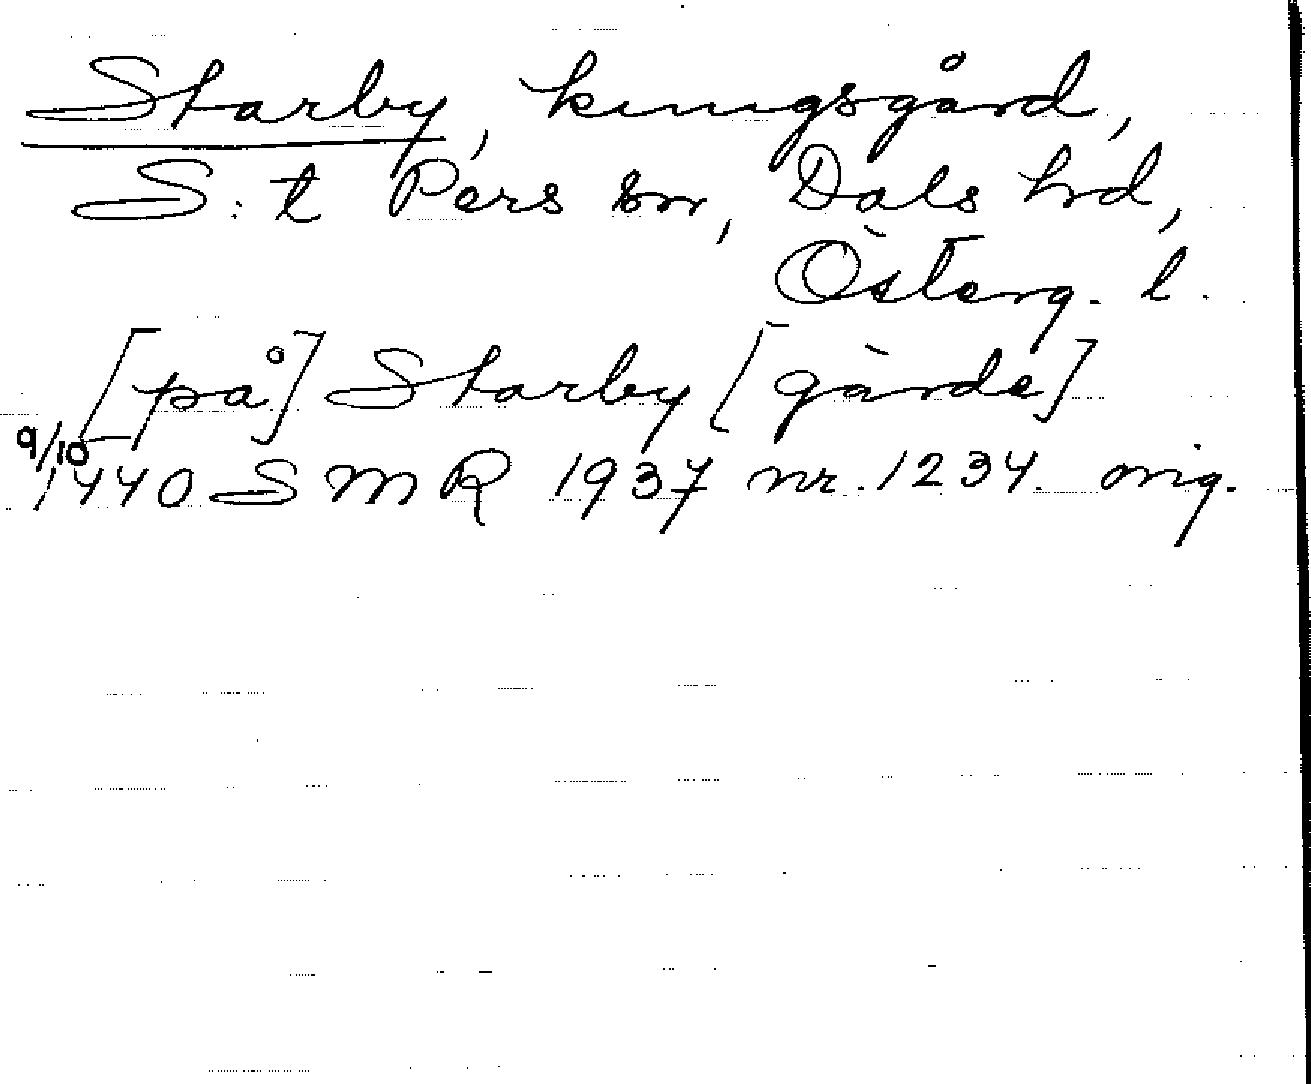 Starby, kungsgård,
S:t Pers sn, Dals hd,
Österg. l.
[på] Starby [gärde]
9/10 1440 SMR 1937 nr. 1234. orig.